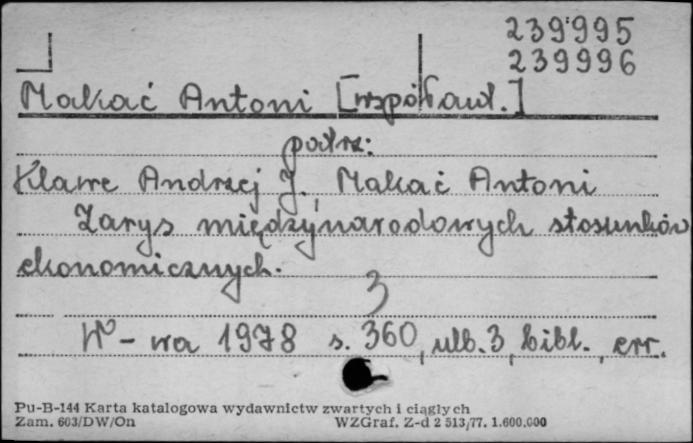 239995
239996
Makać Antoni [współaut.]
patrz:
Klawe Andrzej J., Makać Antoni
Zarys międzynarodowych stosunków
ekonomicznych.
3
W-wa 1978 s. 360, ulb. 3, bibl., err.
Pu-B-144 Karta katalogowa wydawnictw zwartych i ciągłych
Zam. 603/DW/On WZGraf. Z-d 2 513/77. 1.600.000